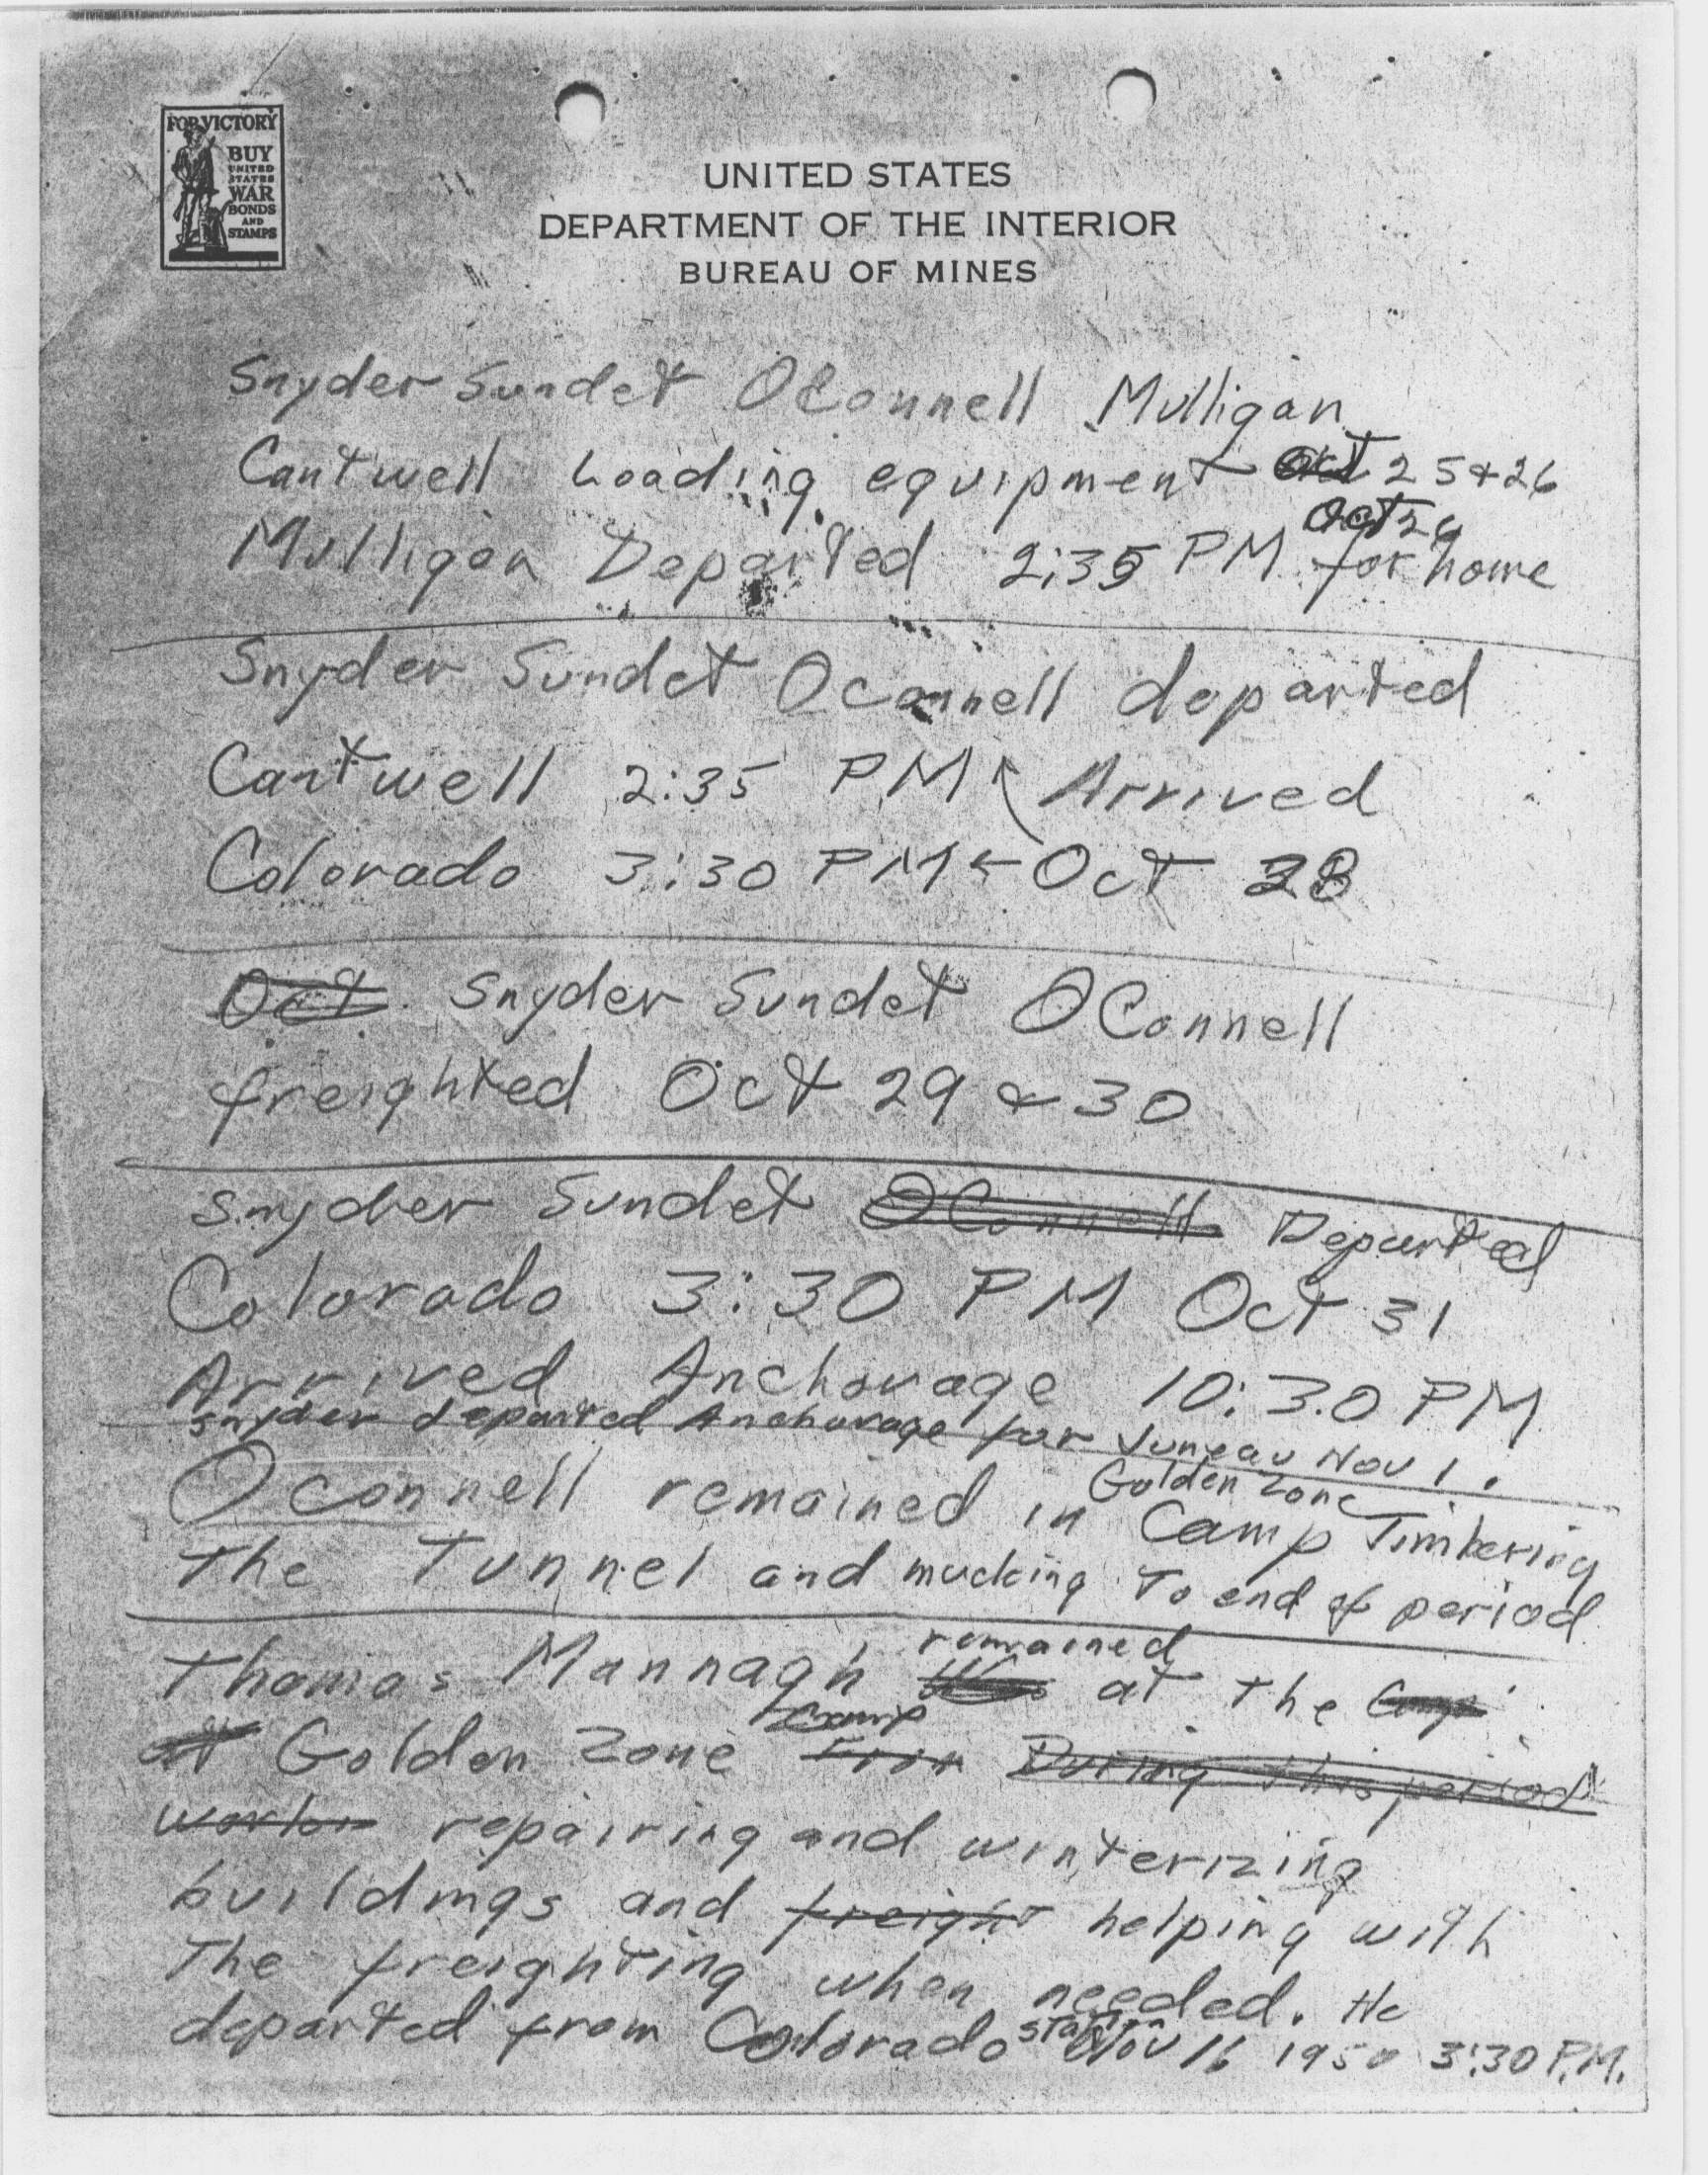 FOR VICTORY
BUY
UNITED
STATES
WAR
BONDS
AND
STAMPS
UNITED STATES
DEPARTMENT OF THE INTERIOR
BUREAU OF MINES
Snyder Sundet OConnell Mulligan
Cantwell Loading equipment Oct 25 & 26
Oct 26
Mulligan Departed 2:35 PM for home
Snyder Sundet Oconnell departed
Cantwell 2:35 PM Arrived
Colorado 3:30 PM ← Oct 28
Oct Snyder Sundet OConnell
freighted Oct 29 & 30
Snyder Sundet OConnell Departed
Colorado 3:30 PM Oct 31
Arrived Anchorage 10:30 PM
Snyder departed Anchorage for Juneau Nov 1.
Golden Zone
Oconnell remained in Camp Timbering
The Tunnel and mucking To end of period
remained
Thomas Mannagh was at the Camp
Camp
at Golden Zone During this period
work repairing and winterizing
buildings and freight helping with
The freighting when needed. He
station
departed from Colorado Nov 16 1950 3:30 P.M.